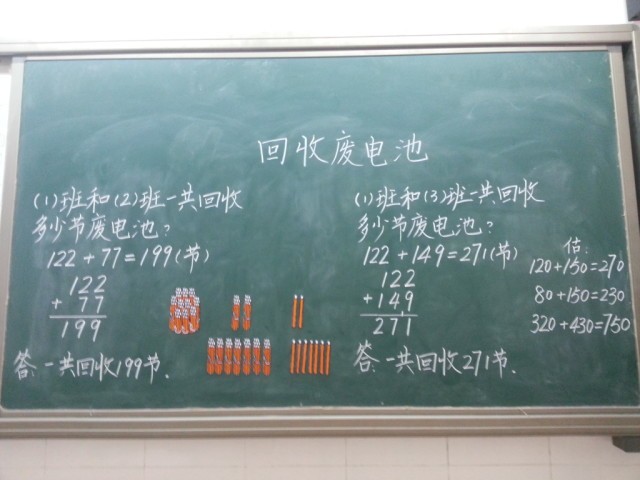 回收废电池
(1)班和(2)班一共回收
多少节废电池?
122+77=199(节)
122
+ 77
199
答:一共回收199节.
(1)班和(3)班一共回收
多少节废电池?
122+149=271(节)
122
+149
271
答:一共回收271节.
估:
120+150=270
80+150=230
320+430=750